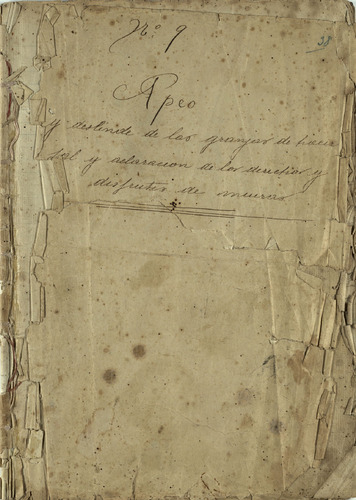 Nº 9
38
Apeo
y deslinde de las granjas de hacer
sal y aclaracion de los derechos y
disfrutes de mueras